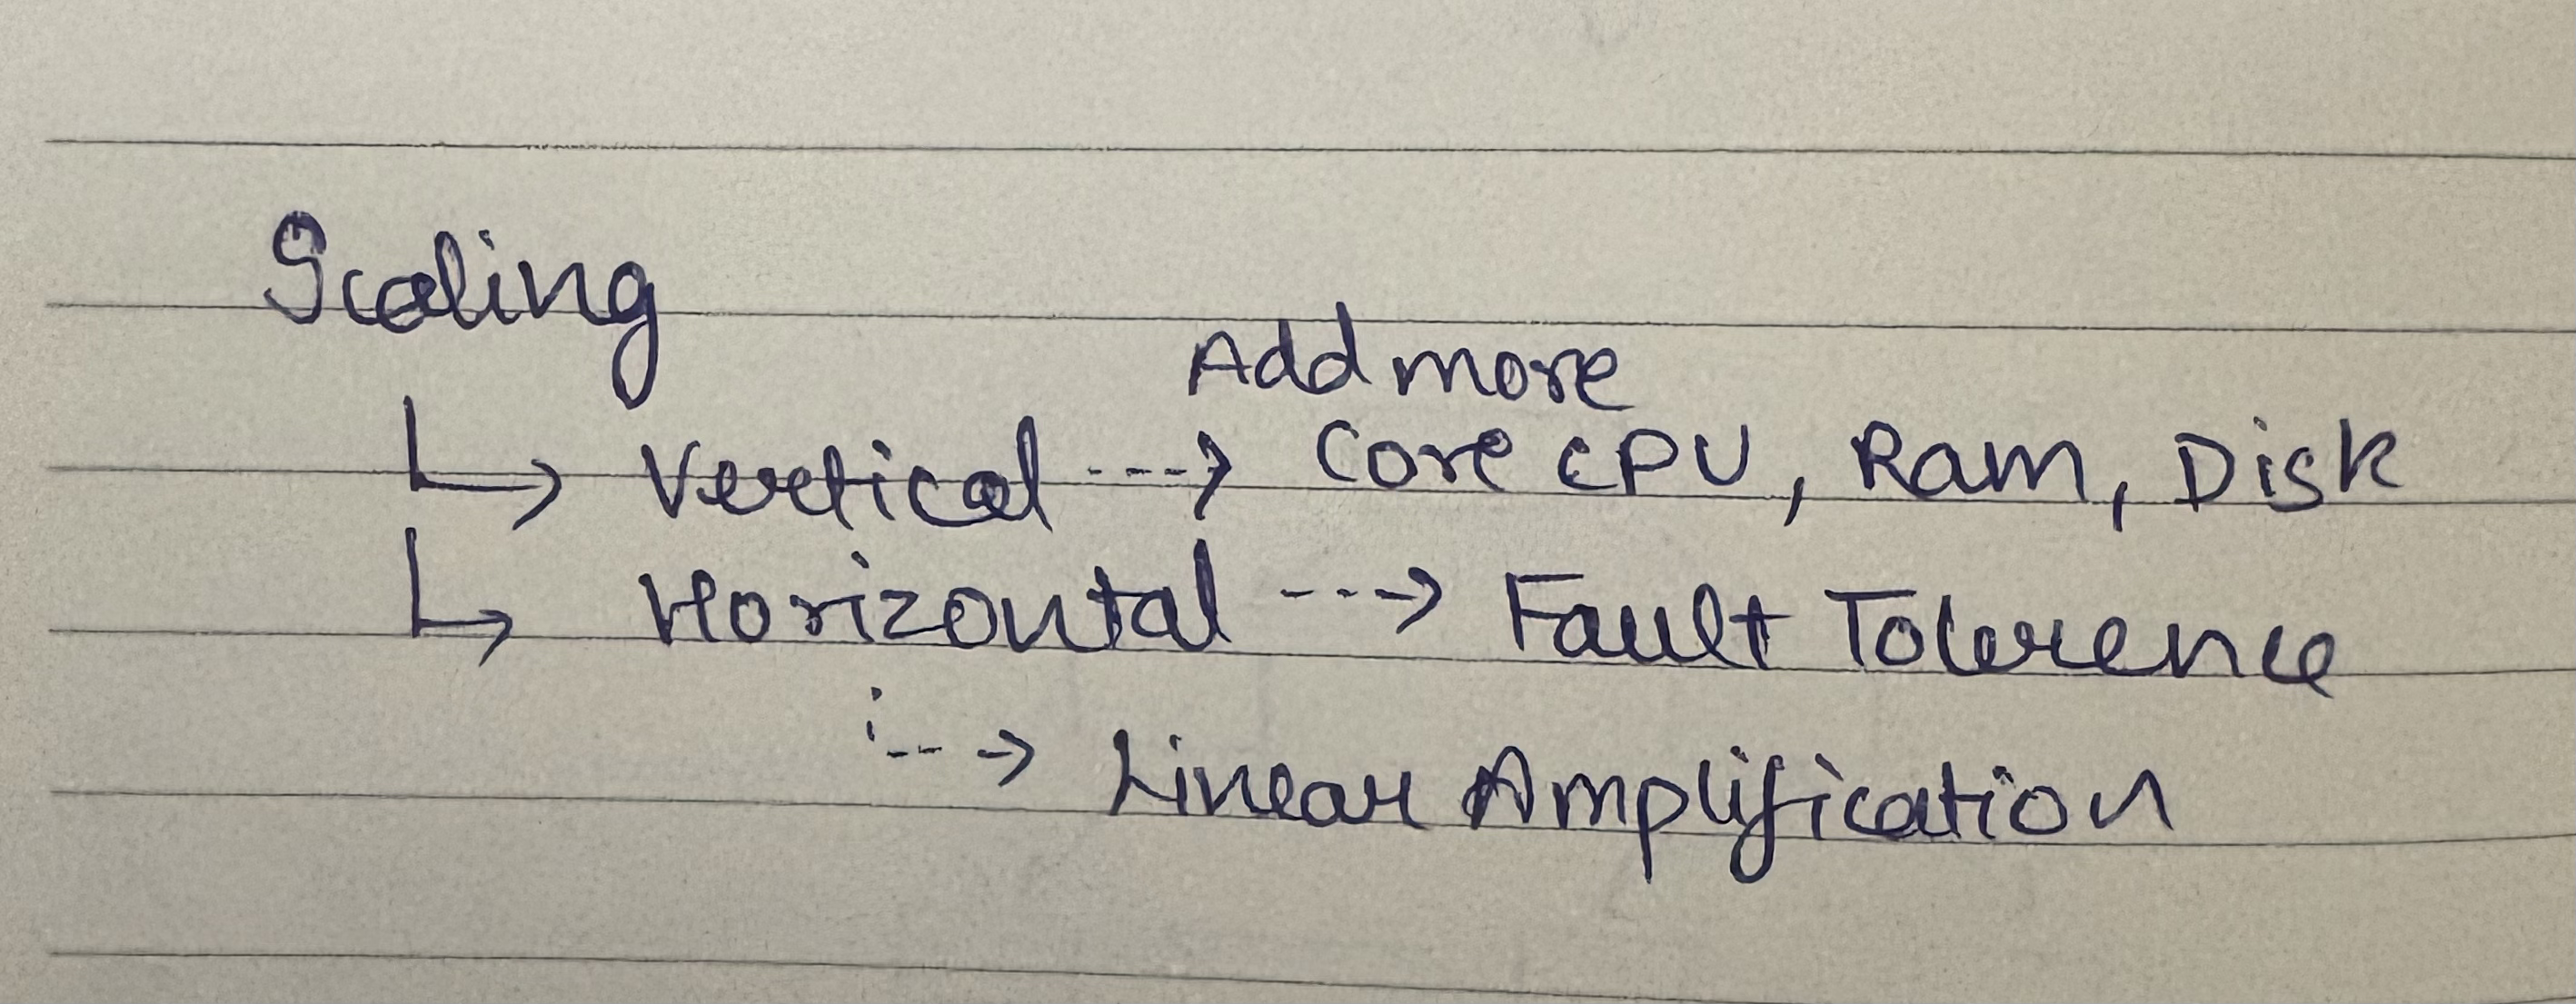 Scaling
Add more
↳ Vertical ---> Core CPU, Ram, Disk
↳ Horizontal ---> Fault Tolerence
---> Linear Amplification